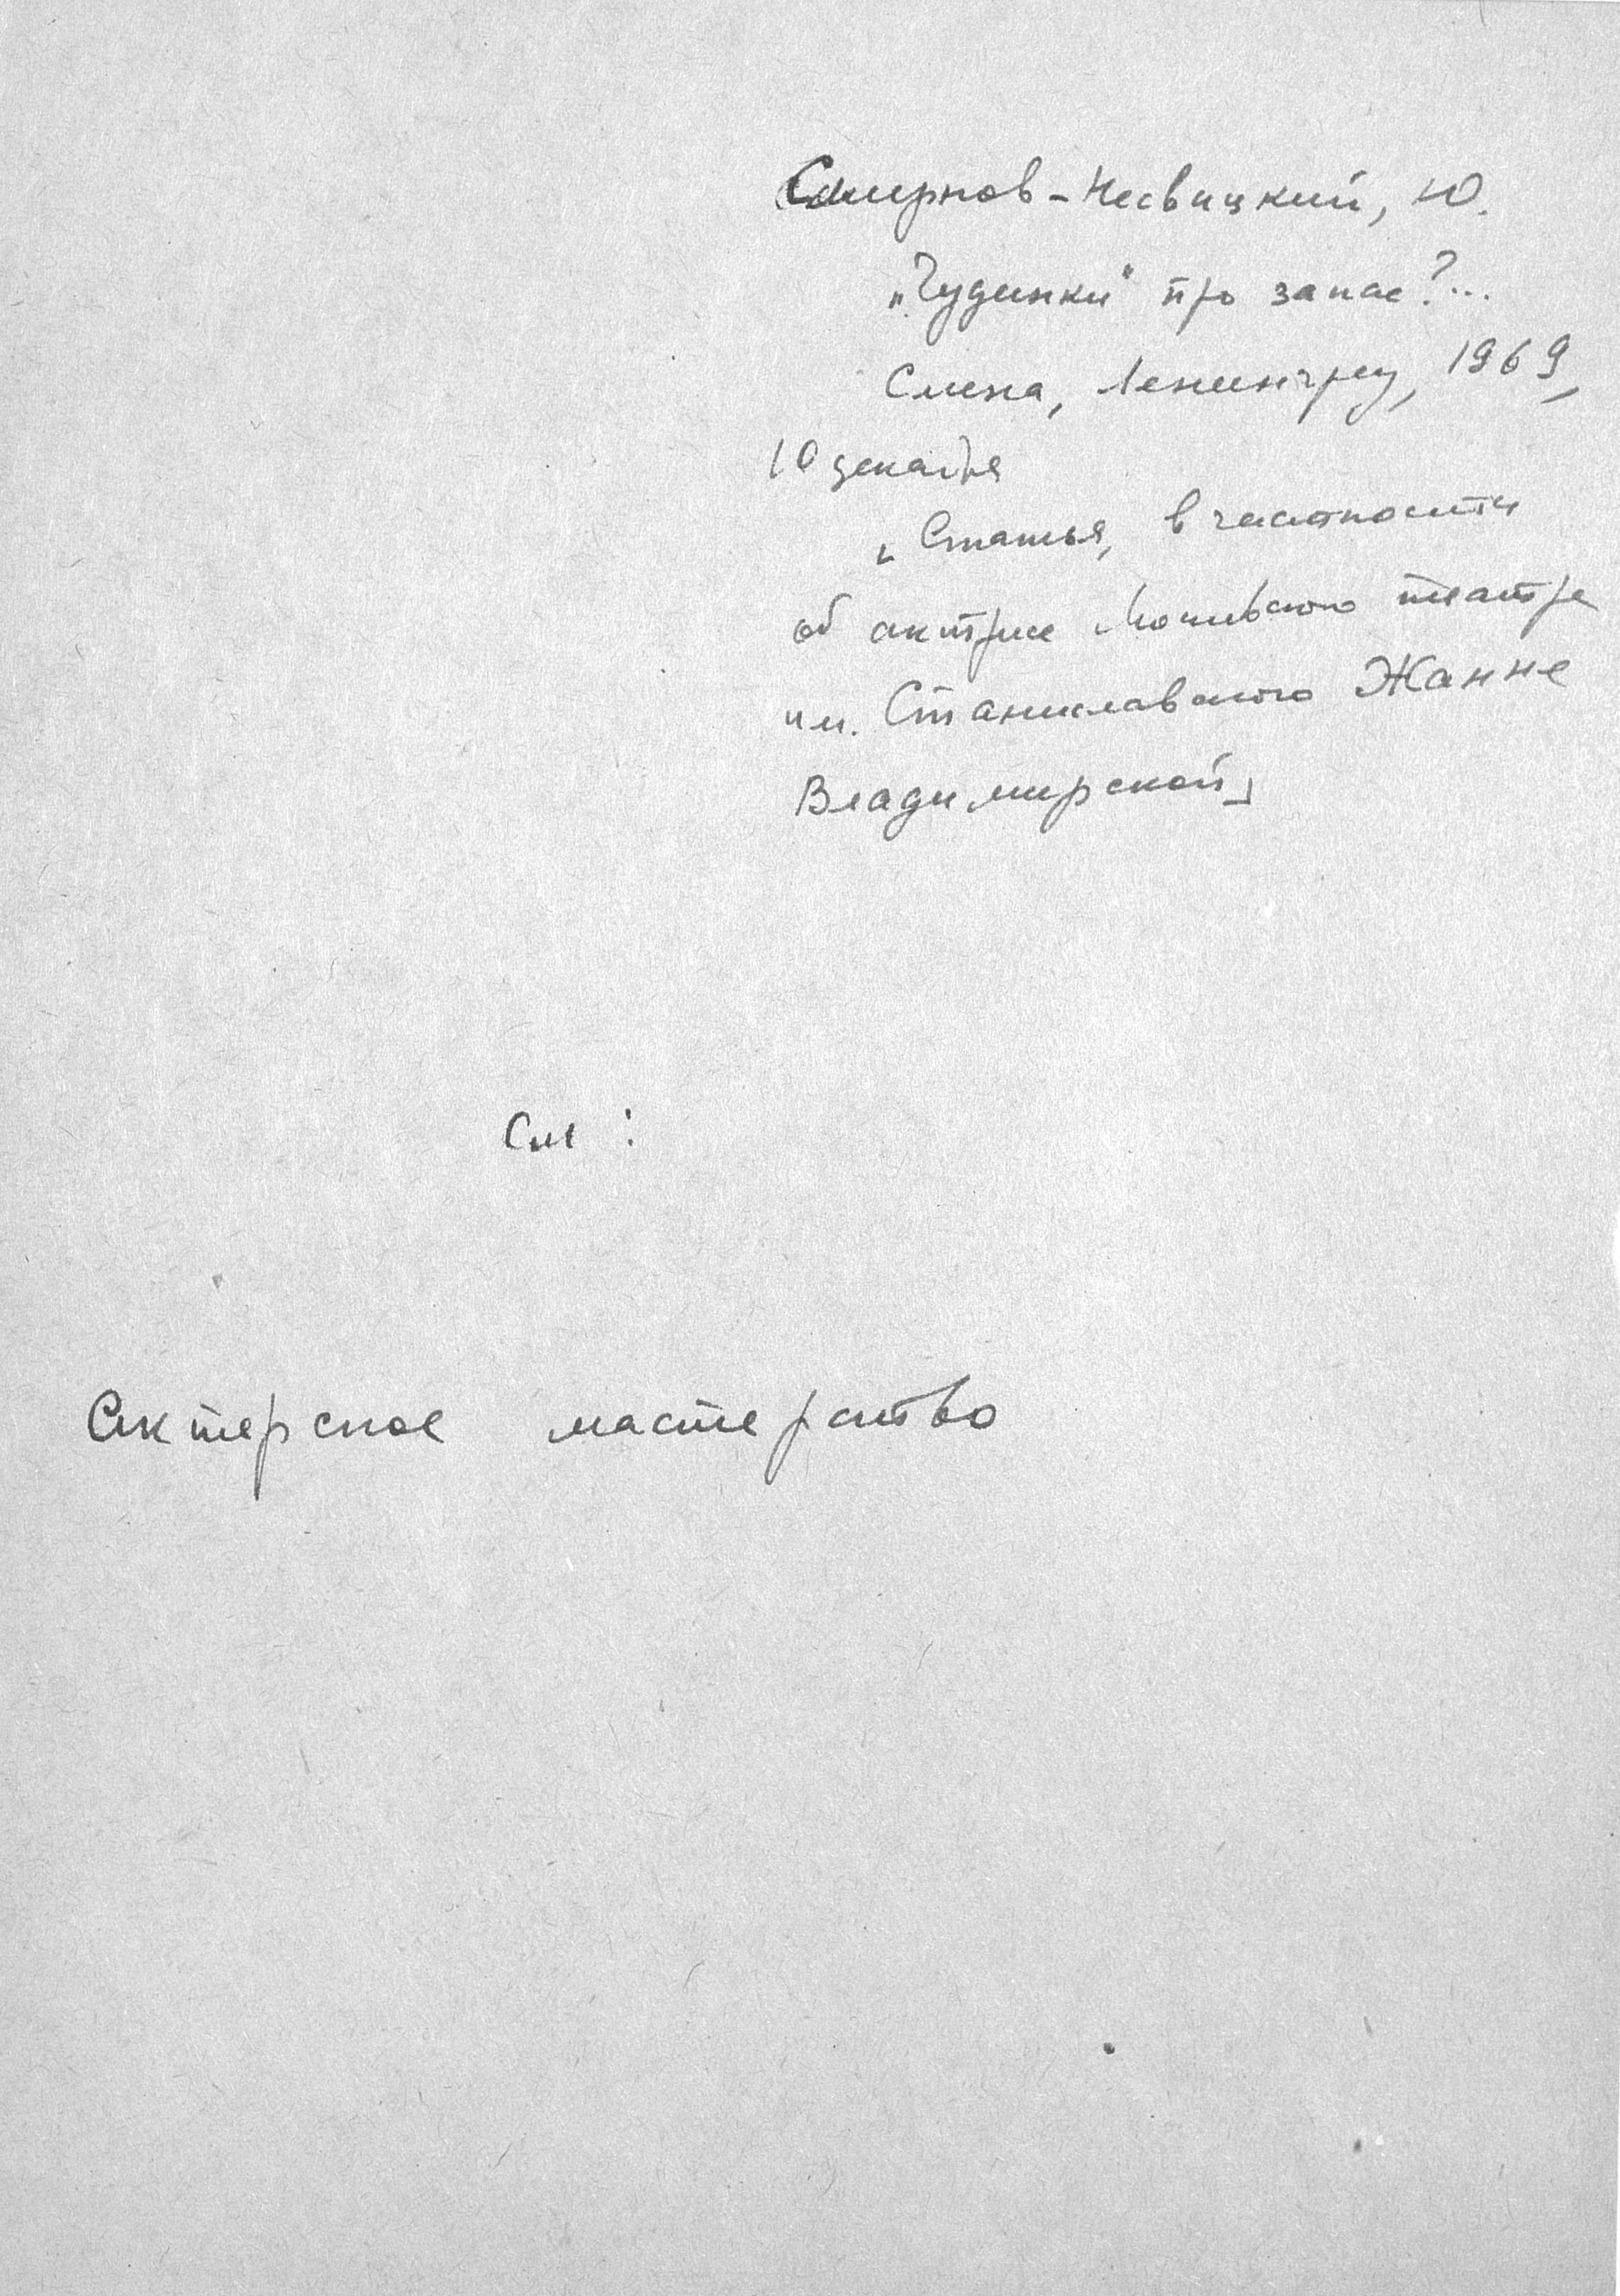 Смирнов-Несвицкий, Ю.
„Чудинки" про запас?...
Смена, Ленинград, 1969,
10 декабря
[Статья, в частности
об актрисе Московского театра
им. Станиславского Жанне
Владимирской]
См :
Актерское мастерство